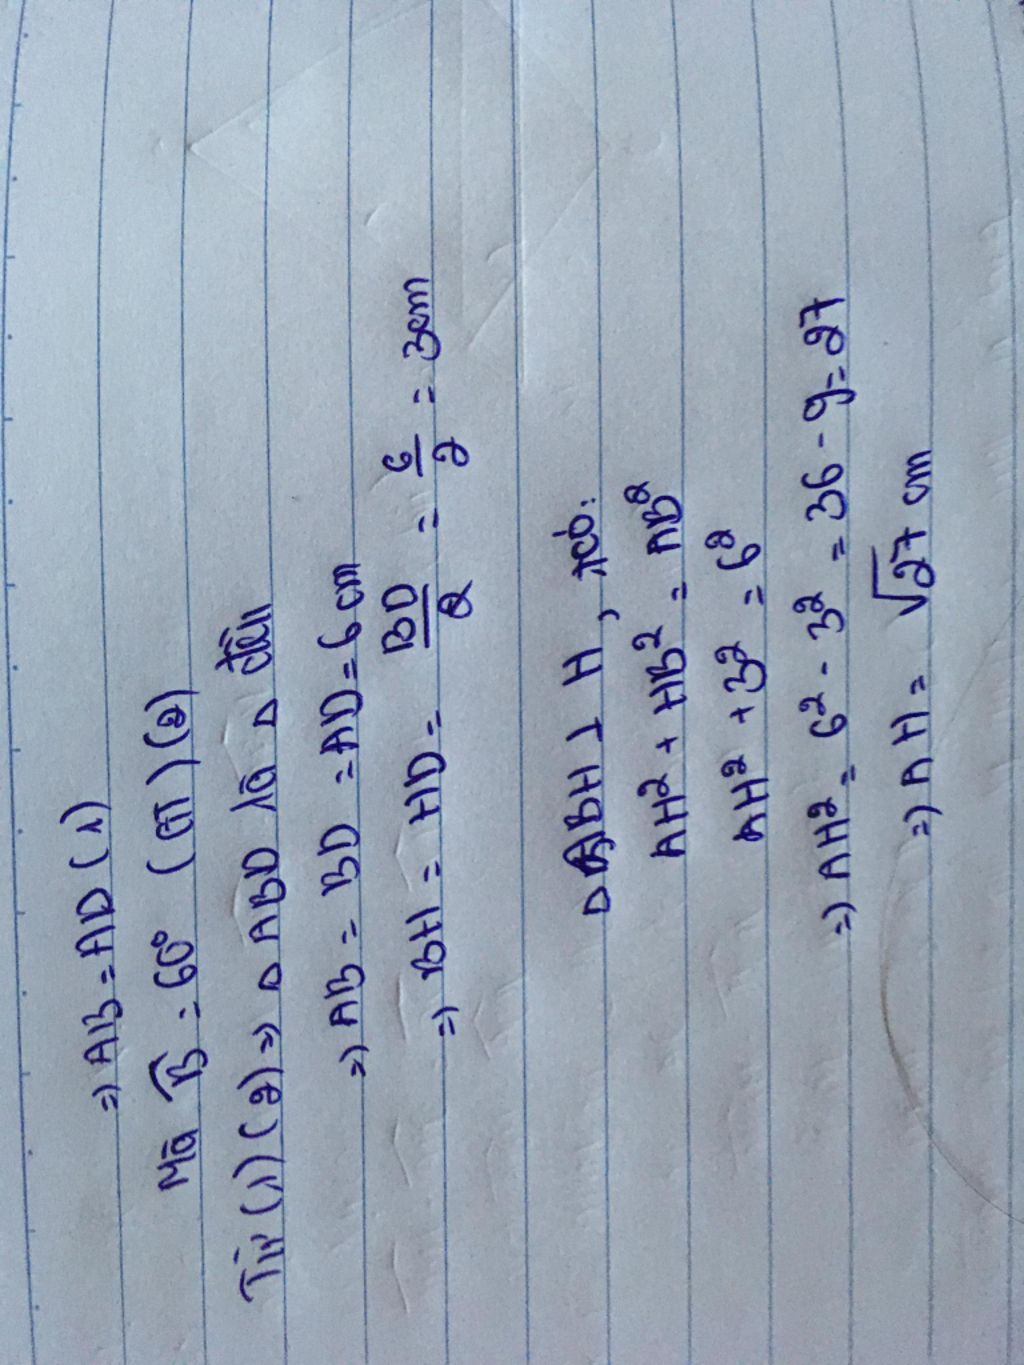 =) AB = AD (1)
Mà B̂ = 60° (GT) (2)
Từ (1) (2) => △ ABD là △ đều
=) AB = BD = AD = 6 cm
=) BH = HD = BD/2 = 6/2 = 3cm
△ ABH ⊥ H, có:
AH² + HB² = AB²
AH² + 3² = 6²
=) AH² = 6² - 3² = 36 - 9 = 27
=) AH = √27 cm